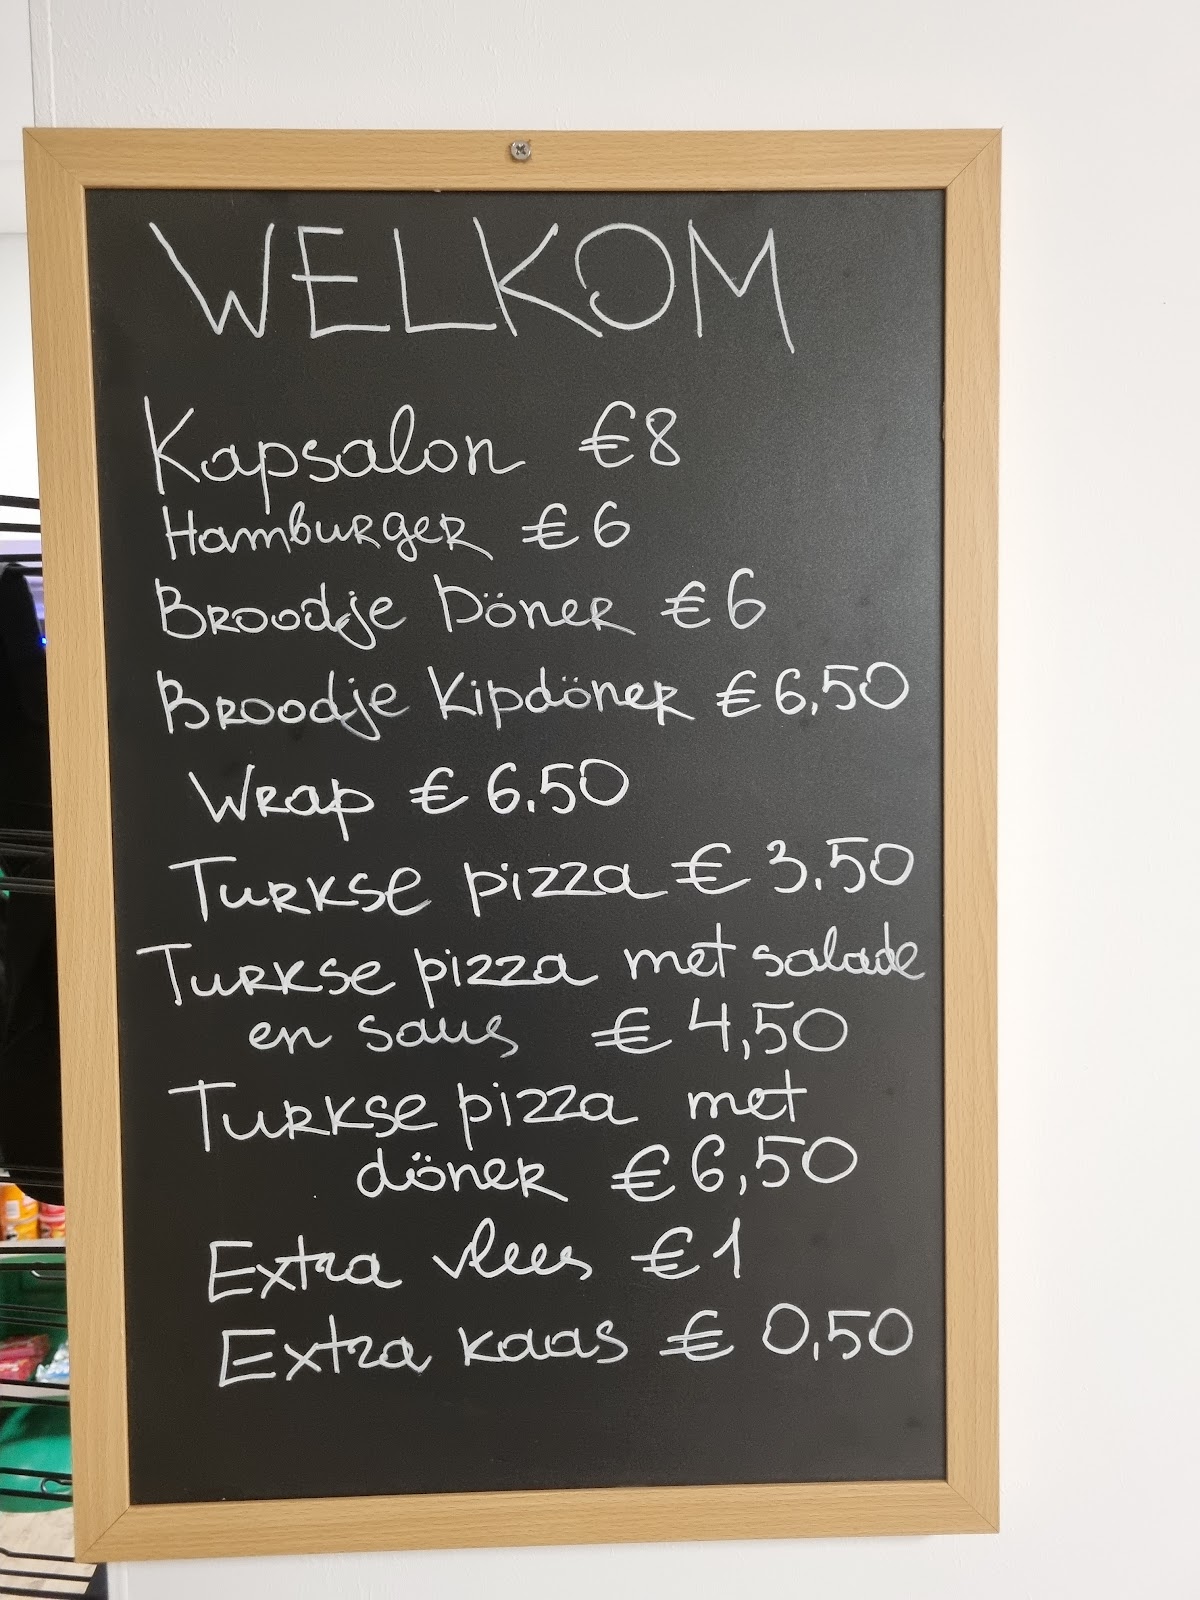 WELKOM
Kapsalon €8
Hamburger €6
Broodje Döner €6
Broodje Kipdöner €6,50
Wrap €6.50
Turkse pizza €3.50
Turkse pizza met salade
en saus €4,50
Turkse pizza met
döner €6,50
Extra vlees €1
Extra kaas €0,50